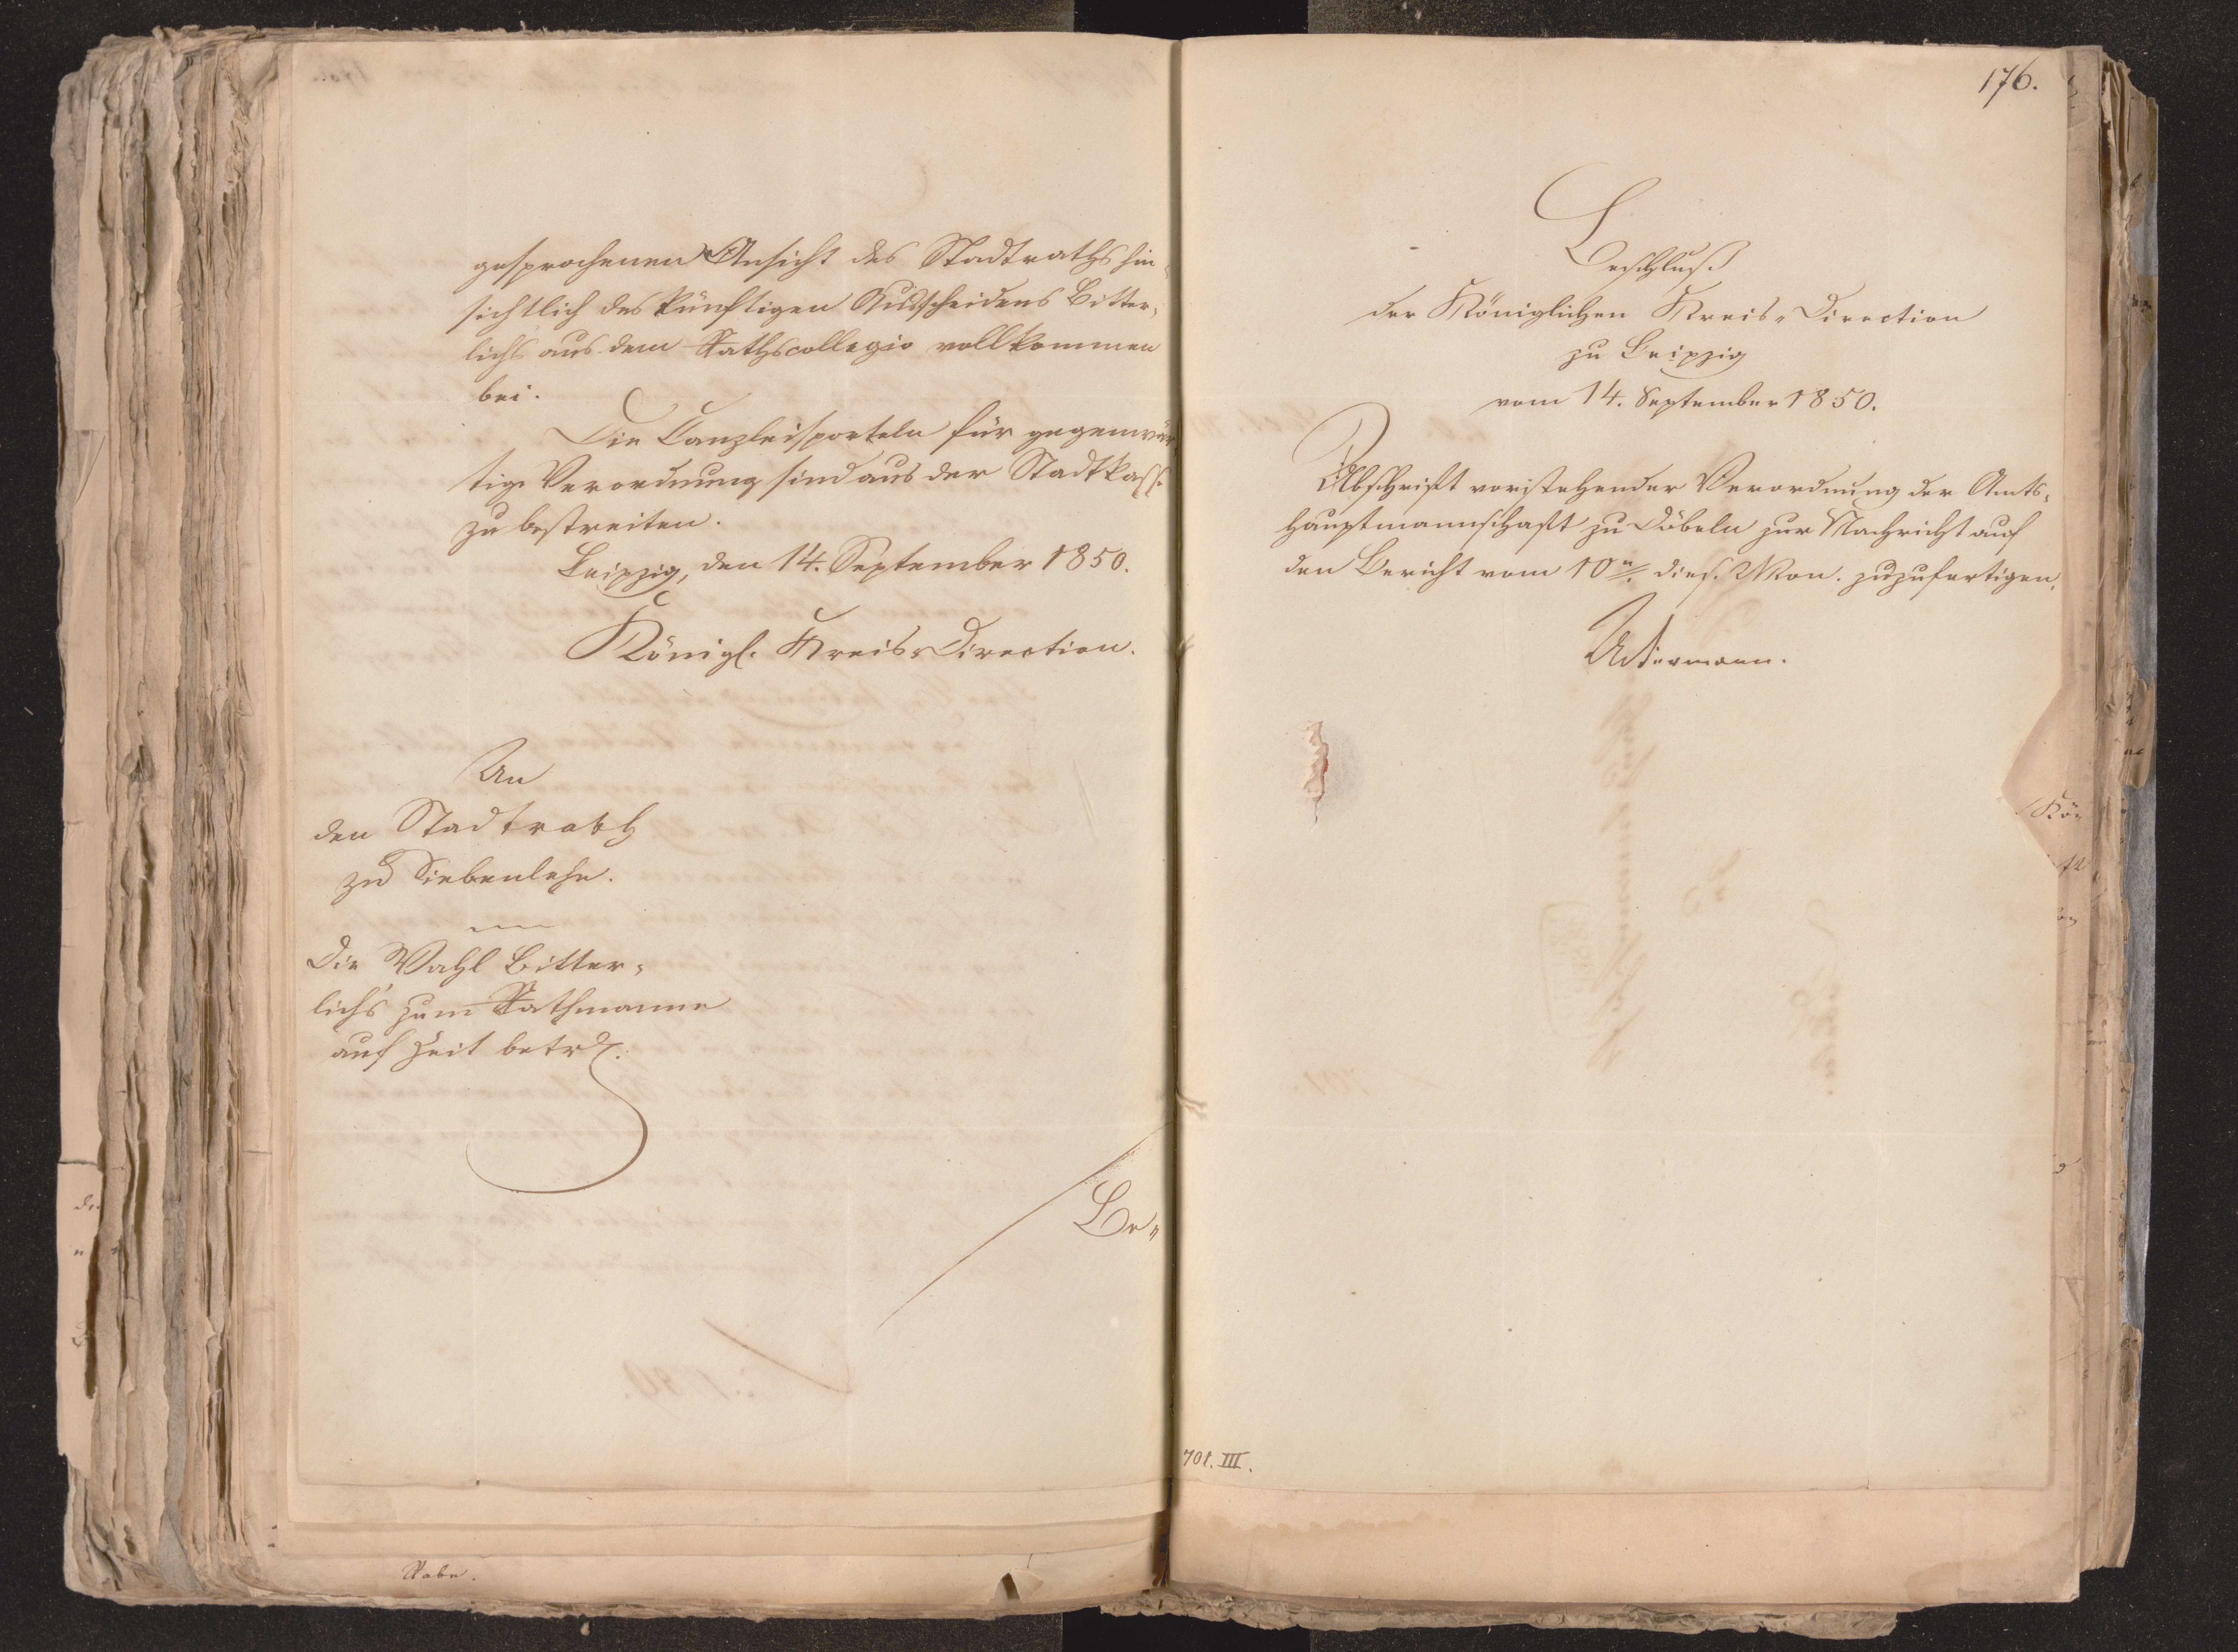 gesprochenen Ansicht des Stadtraths hin-
sichtlich des künftigen Ausscheidens Bitter-
lichs aus dem Rathscollegio vollkommen
bei.
Die Canzleisporteln für gegenwär
tige Verordnung sind aus der Stadtkasse
zu bestreiten.
Leipzig, den 14. September 1850.
Königl. Kreis-Direction.
An
den Stadtrath
zu Siebenlehn.
Die Wahl Bitter-
lich's zum Rathmanne
auf Zeit betr.
Be-
176.
Beschluß
der Königlichen Kreis-Direction
zu Leipzig
vom 14. September 1850.
Abschrift vorstehender Verordnung der Amts-
hauptmannschaft zu Döbeln zur Nachricht auf
den Bericht vom 10n dies. Mon. zuzufertigen.
Ackermann.
701. III.